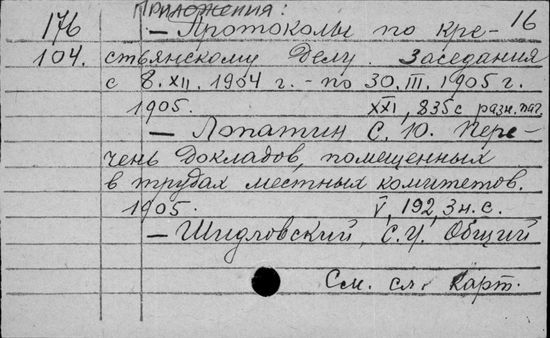 Приложения: 16
176 — Протоколы по кре-
104. стьянскому делу. Заседания
с 8.XII.1904 г. - по 30.III.1905 г.
1905. XXI, 835 с. разн. паг.
— Лопатин С. Ю. Пере-
чень докладов, помещенных
в трудах местных комитетов.
1905. V, 192, 3 н. с.
— Шидловский, С.И. Общий
См. сл. карт.